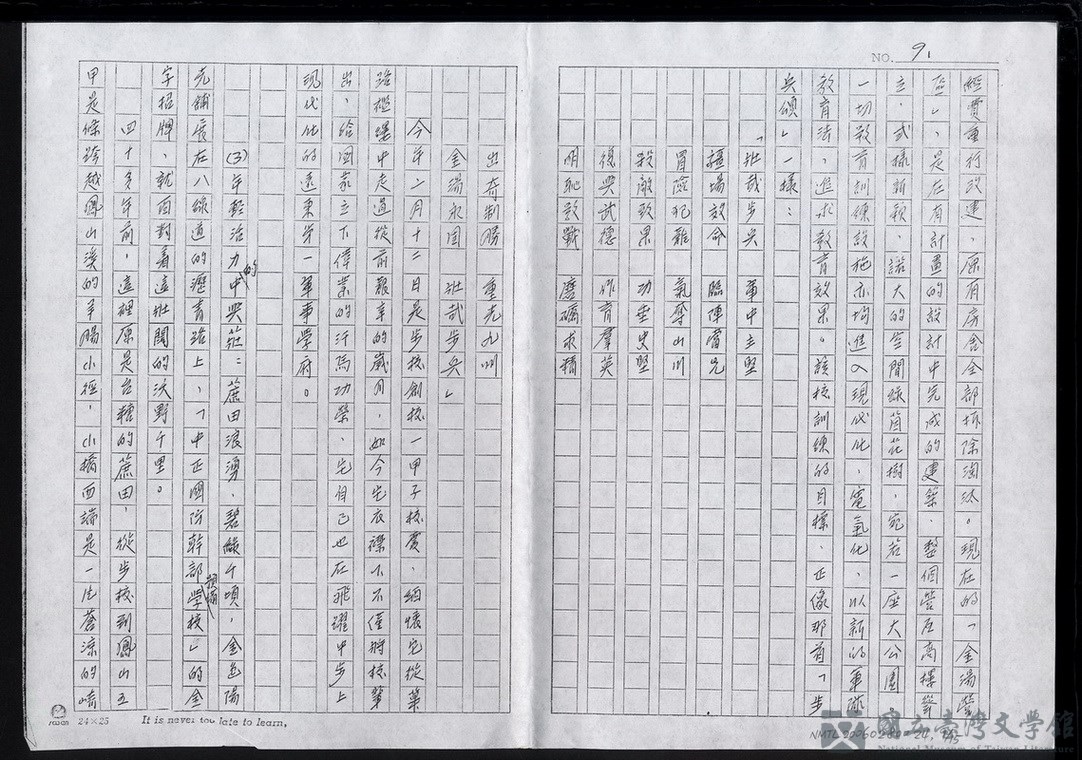 NO. 9.
經費重行改建，原有房舍全部拆除淘汰。現在的「金湯營
區」，是在有計畫的設計中完成的建築，整個營區高樓聳
立，式樣新穎，諾大的空間綠茵花樹，宛若一座大公園，
一切教育訓練設施亦均進入現代化，電氣化，以新的軍隊
教育法，進求教育效果。該校訓練的目標，正像那首「步
兵頌」一樣：
「壯哉步兵　軍中主堅
疆場效命　臨陣當先
冒險犯難　氣奪山川
殺敵致果　功垂史堅
復興武德　作育羣英
明恥教戰　磨礪求精
出奇制勝　重光九州
金湯永固　壯哉步兵」
今年二月十二日是步校創校一甲子校慶，緬懷它從篳
路襤褸中走過從前艱辛的歲月，如今先衣襟下不僅將校筆
出，給國家立下偉業的汗馬功榮，它自己也在飛躍中步上
現代化的遠東第一軍事學府。
(3)年輕活力的中興莊：蔗田浪湧，碧綠千頃，金色陽
光舖展在八線道的瀝青路上，「中正國防幹部預備學校」的金
字招牌，就面對着這壯闊的沃野千里。
四十多年前，這裡原是台糖的蔗田，從步校到鳳山五
甲是條跨越鳳山溪的羊腸小徑，小橋西端是一片蒼涼的崎
24×25
It is never too late to learn,
國立臺灣文學館
National Museum of Taiwan Literature